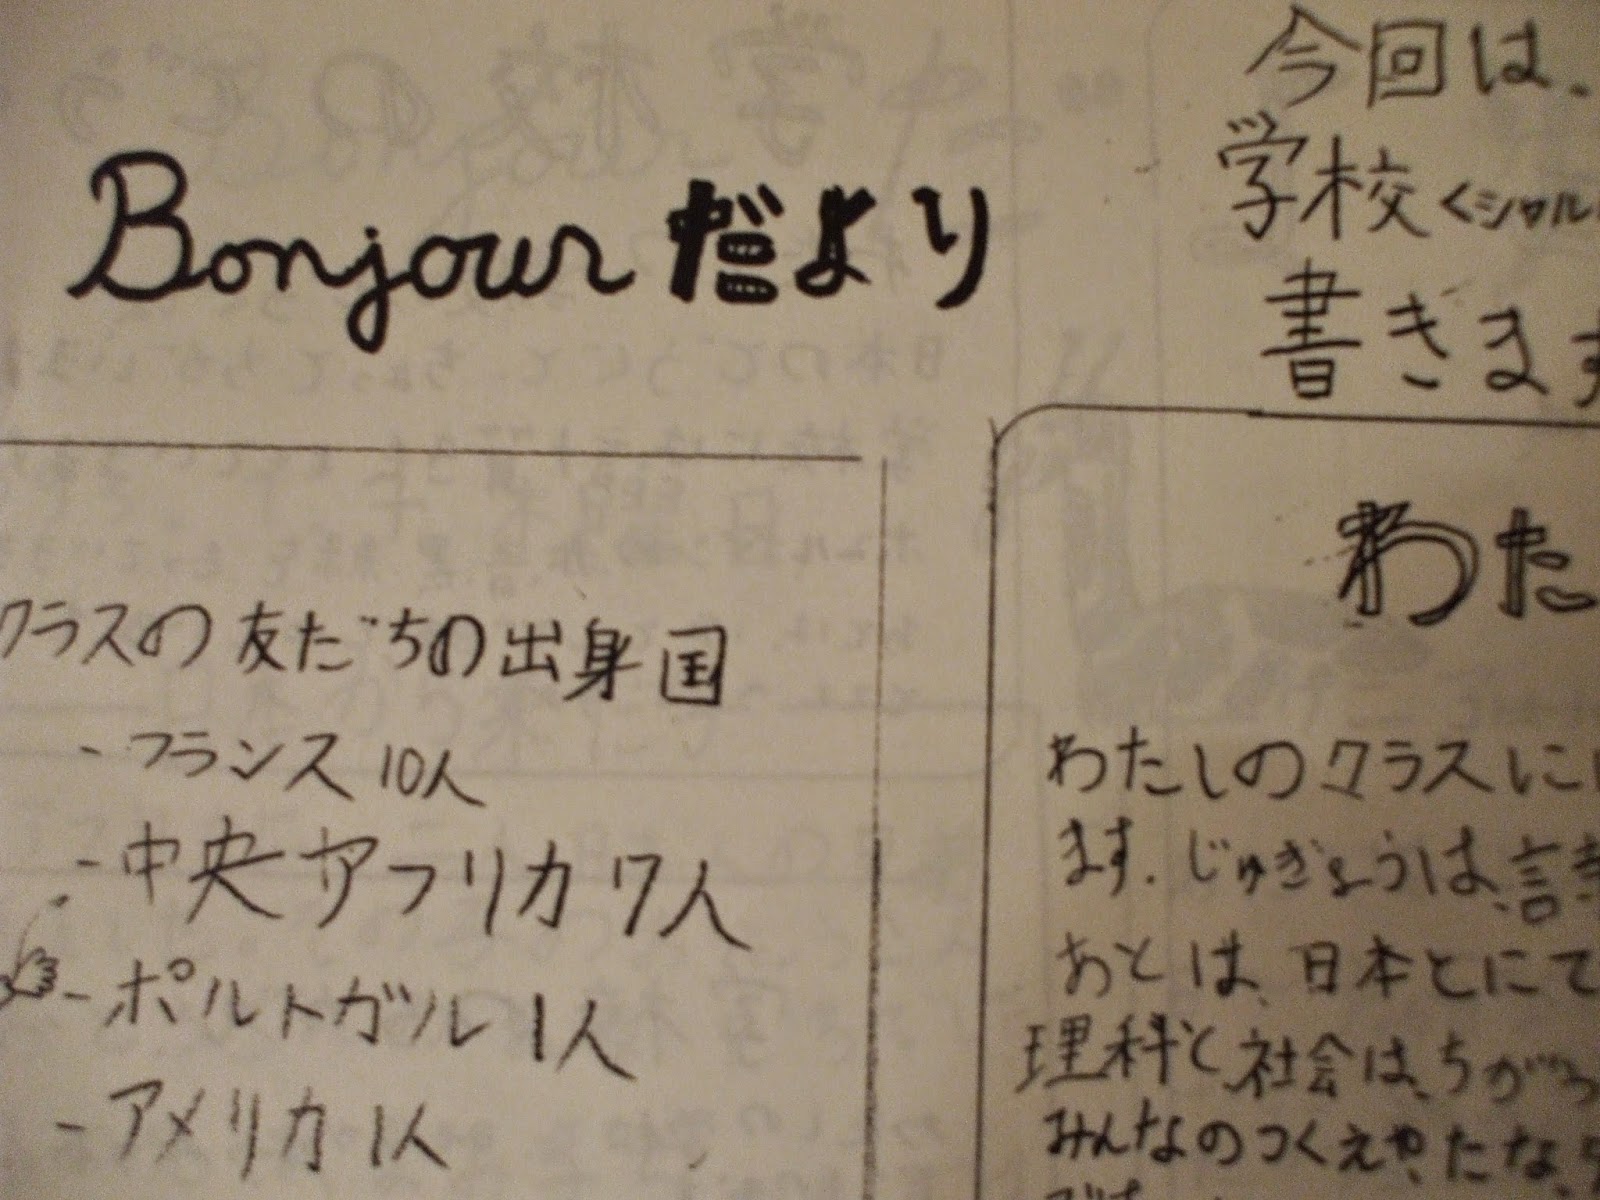 Bonjourだより
クラスの友だちの出身国
- フランス 10人
- 中央アフリカ 7人
- ポルトガル 1人
- アメリカ 1人
今回は、
学校<シャル
書きます
わた
わたしのクラスに
ます。じゅぎょうは、言
あとは、日本とにて
理科と社会は、ちがう
みんなのつくえや、たな、